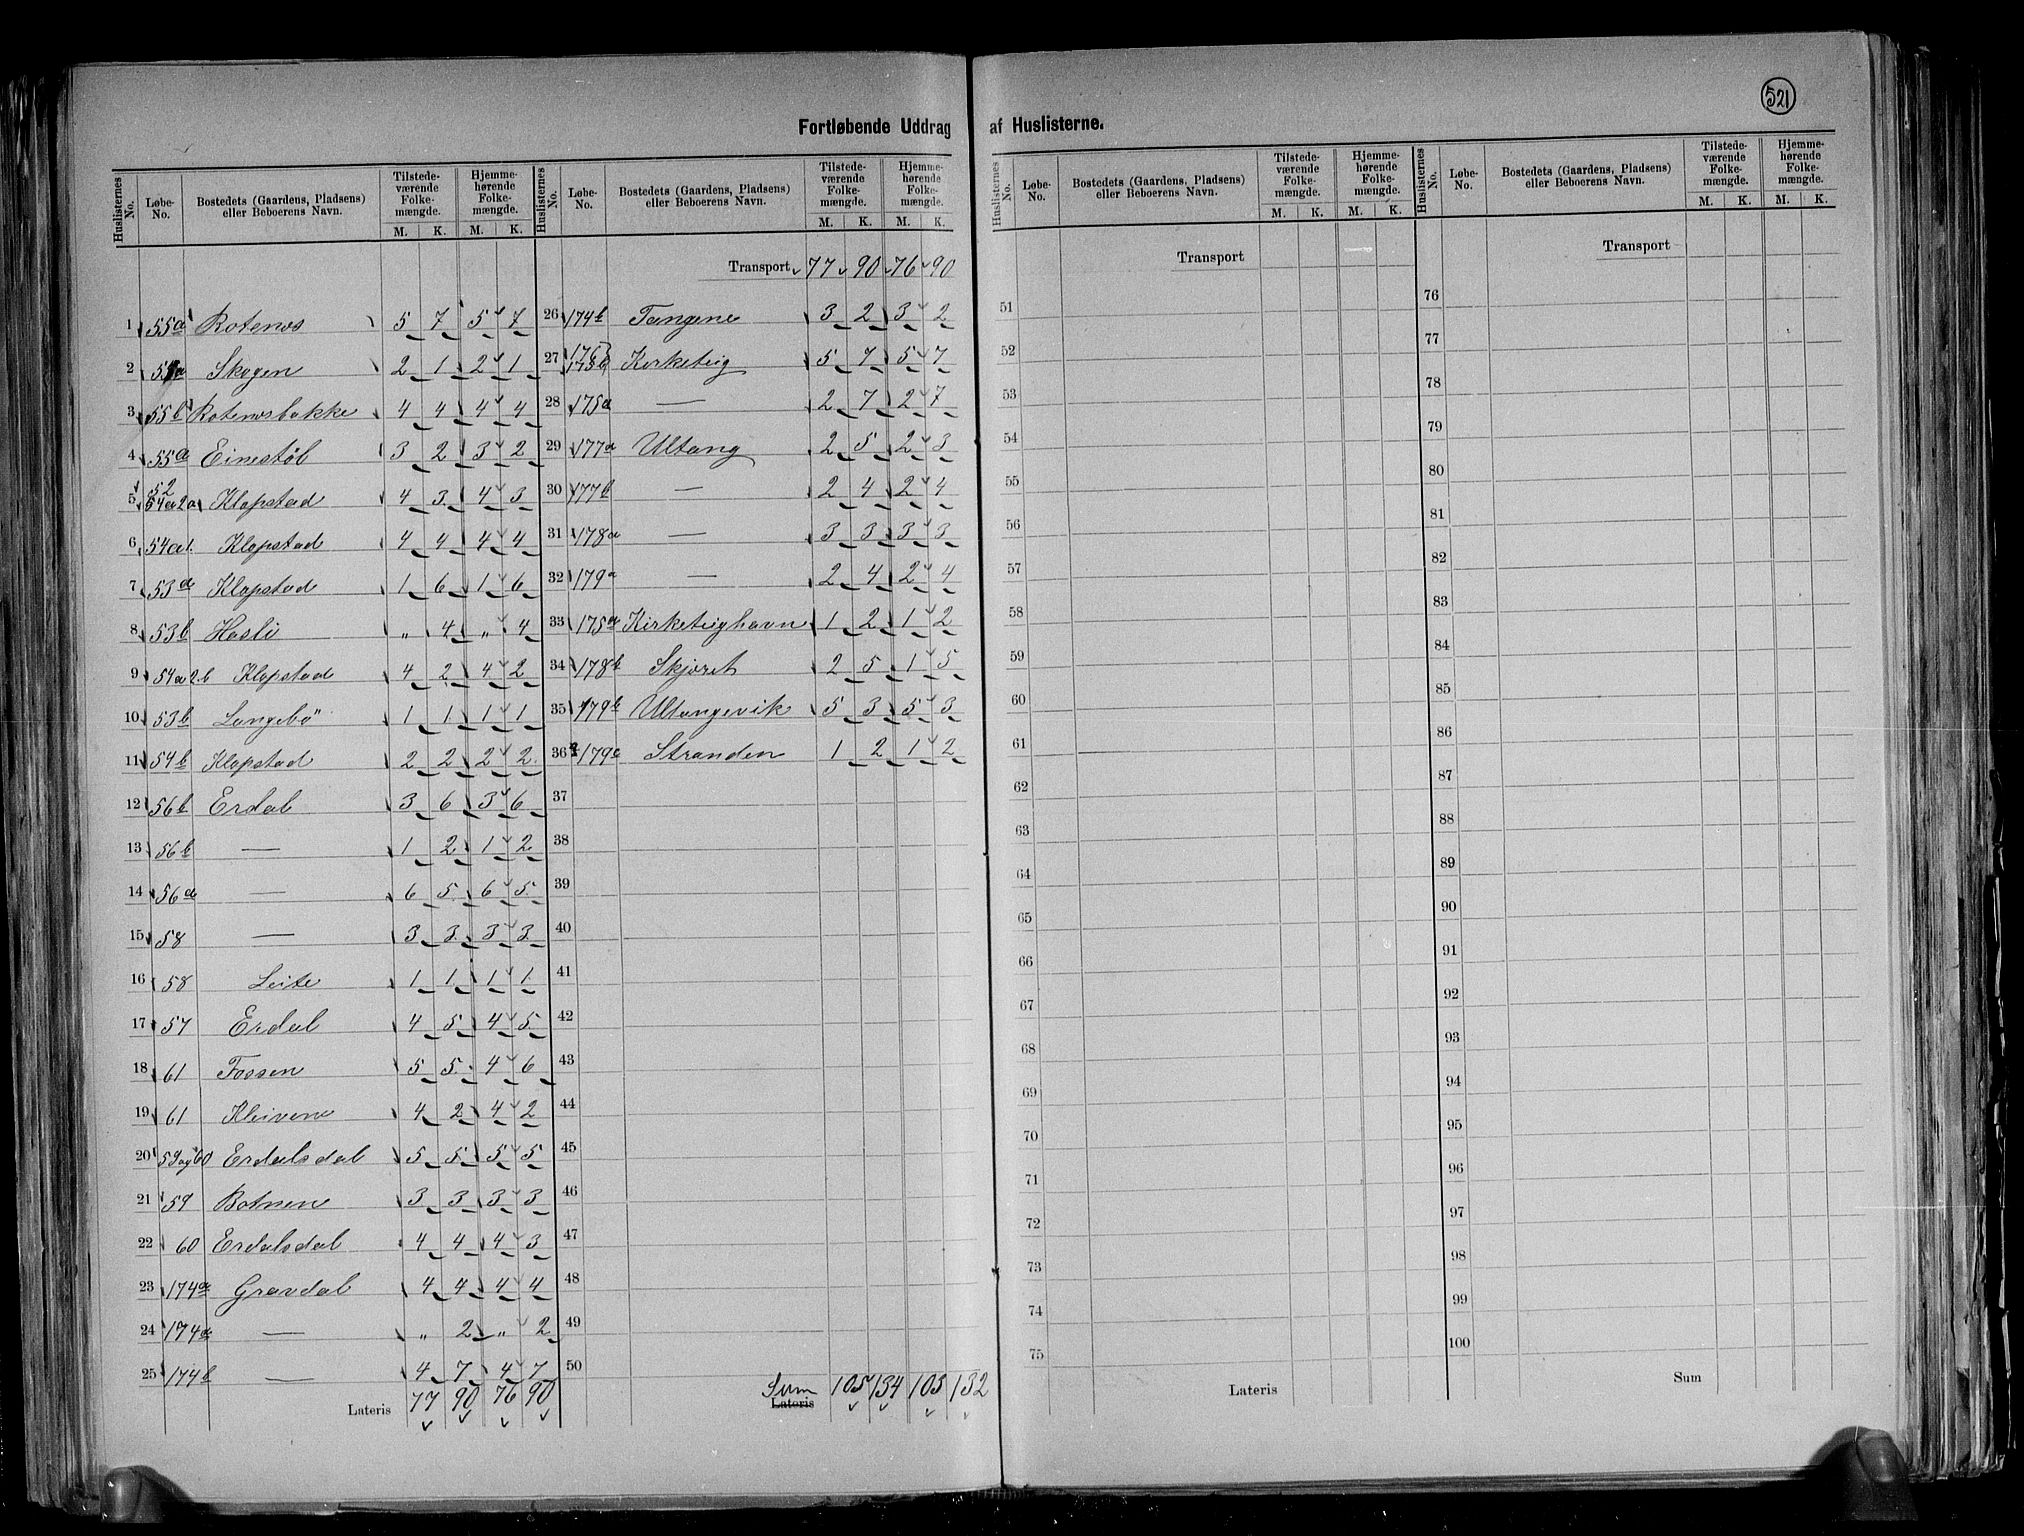 521
Fortløbende Uddrag af Huslisterne.
Huslisternes No. Løbe-No. Bostedets (Gaardens, Pladsens) eller Beboerens Navn. Tilstedeværende Folkemængde. M. K. Hjemmehørende Folkemængde. M. K.
1 55a Rotenes 5 7 5 7
2 Skogen 2 1 2 1
3 55b Rotenesbakke 4 4 4 4
4 55a Einestøb 3 2 3 2
5 52 54a2a Klopstad 4 3 4 3
6 54a1. Klopstad 4 4 4 4
7 53a Klopstad 1 6 1 6
8 53b Hasli „ 4 „ 4
9 54a2b Klopstad 4 2 4 2
10 53b Langebö 1 1 1 1
11 54b Klopstad 2 2 2 2
12 56b Erdal 3 6 3 6
13 56b — 1 2 1 2
14 56a — 6 5 6 5
15 58 — 3 3 3 3
16 58 Leite 1 1 1 1
17 57 Erdal 4 5 4 5
18 61 Fossen 5 5 4 6
19 61 Kleivene 4 2 4 2
20 59og60 Erdalsdal 5 5 5 5
21 59 Botnen 3 3 3 3
22 60 Erdalsdal 4 4 4 3
23 174a Gravdal 4 4 4 4
24 174a — „ 2 „ 2
25 174b — 4 7 4 7
Lateris 77 90 76 90
Huslisternes No. Løbe-No. Bostedets (Gaardens, Pladsens) eller Beboerens Navn. Tilstedeværende Folkemængde. M. K. Hjemmehørende Folkemængde. M. K.
Transport 77 90 76 90
26 174b Tangene 3 2 3 2
27 176 Kirketeig 5 7 5 7
28 175a — 2 7 2 7
29 177a Ultang 2 5 2 3
30 177b — 2 4 2 4
31 178a — 3 3 3 3
32 179a — 2 4 2 4
33 175a Kirketeighavn 1 2 1 2
34 178b Skjæret 2 5 1 5
35 179b Ultangevik 5 3 5 3
36 179c Stranden 1 2 1 2
37
38
39
40
41
42
43
44
45
46
47
48
49
50
Sum Lateris 105 134 103 132
Huslisternes No. Løbe-No. Bostedets (Gaardens, Pladsens) eller Beboerens Navn. Tilstedeværende Folkemængde. M. K. Hjemmehørende Folkemængde. M. K.
Transport
51
52
53
54
55
56
57
58
59
60
61
62
63
64
65
66
67
68
69
70
71
72
73
74
75
Lateris
Huslisternes No. Løbe-No. Bostedets (Gaardens, Pladsens) eller Beboerens Navn. Tilstedeværende Folkemængde. M. K. Hjemmehørende Folkemængde. M. K.
Transport
76
77
78
79
80
81
82
83
84
85
86
87
88
89
90
91
92
93
94
95
96
97
98
99
100
Sum